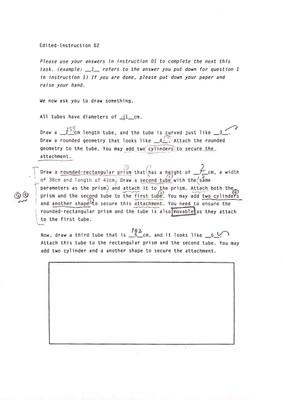 Edited-Instruction 02
Please use your answers in instruction 01 to complete the next this
task. (example: __1__ refers to the answer you put down for question 1
in instruction 1) If you are done, please put down your paper and
raise your hand.
We now ask you to draw something.
All tubes have diameters of cm.
Draw a cm length tube, and the tube is curved just like
Draw a rounded geometry that looks like Attach the rounded
geometry to the tube. You may add two cylinders to secure the
attachment.
Draw a rounded-rectangular prism that has a height of cm, a width
of 30cm and length of 41cm. Draw a second tube with the same
parameters as the prism) and attach it to the prism. Attach both the
prism and the second tube to the first tube. You may add two cylinders
and another shape to secure this attachment. You need to ensure the
rounded-rectangular prism and the tube is also movable as they attach
to the first tube.
Now, draw a third tube that is cm, and it looks like
Attach this tube to the rectangular prism and the second tube. You may
add two cylinder and a another shape to secure the attachment.